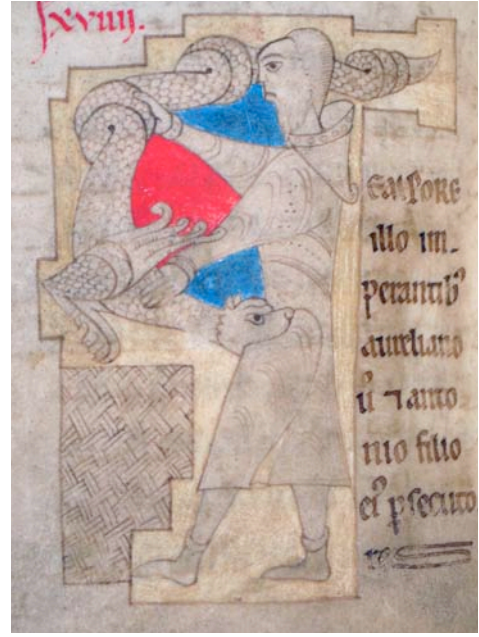 lxviiij.
empore
illo im-
perantib᾿
aureliano
u᾿ ⁊ anto
nio filio
ei᾿ ꝑsecuto
res